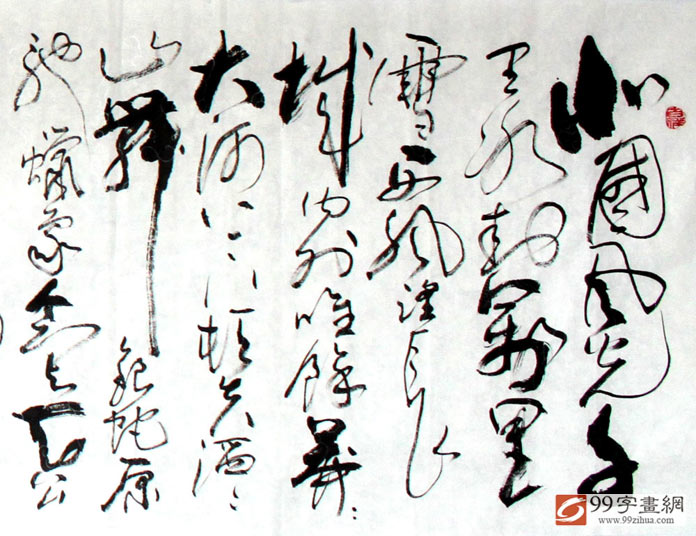 北國風光千
里冰封萬里
雪飄望長
城內外唯餘莽〻
大河上下頓失滔〻
山舞銀蛇原
馳蠟象欲与天公
99字畫網
www.99zihua.com